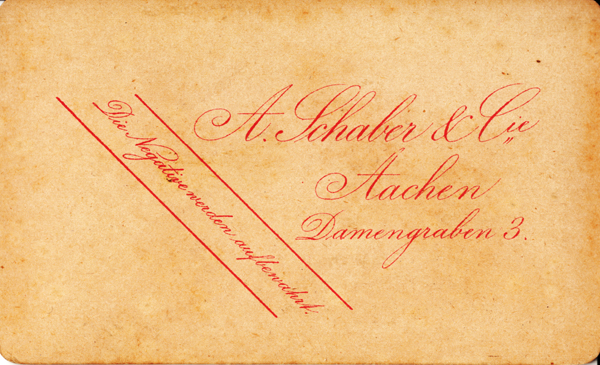 A. Schaber & Cie
Aachen
Damengraben 3.
Die Negative werden aufbewahrt.